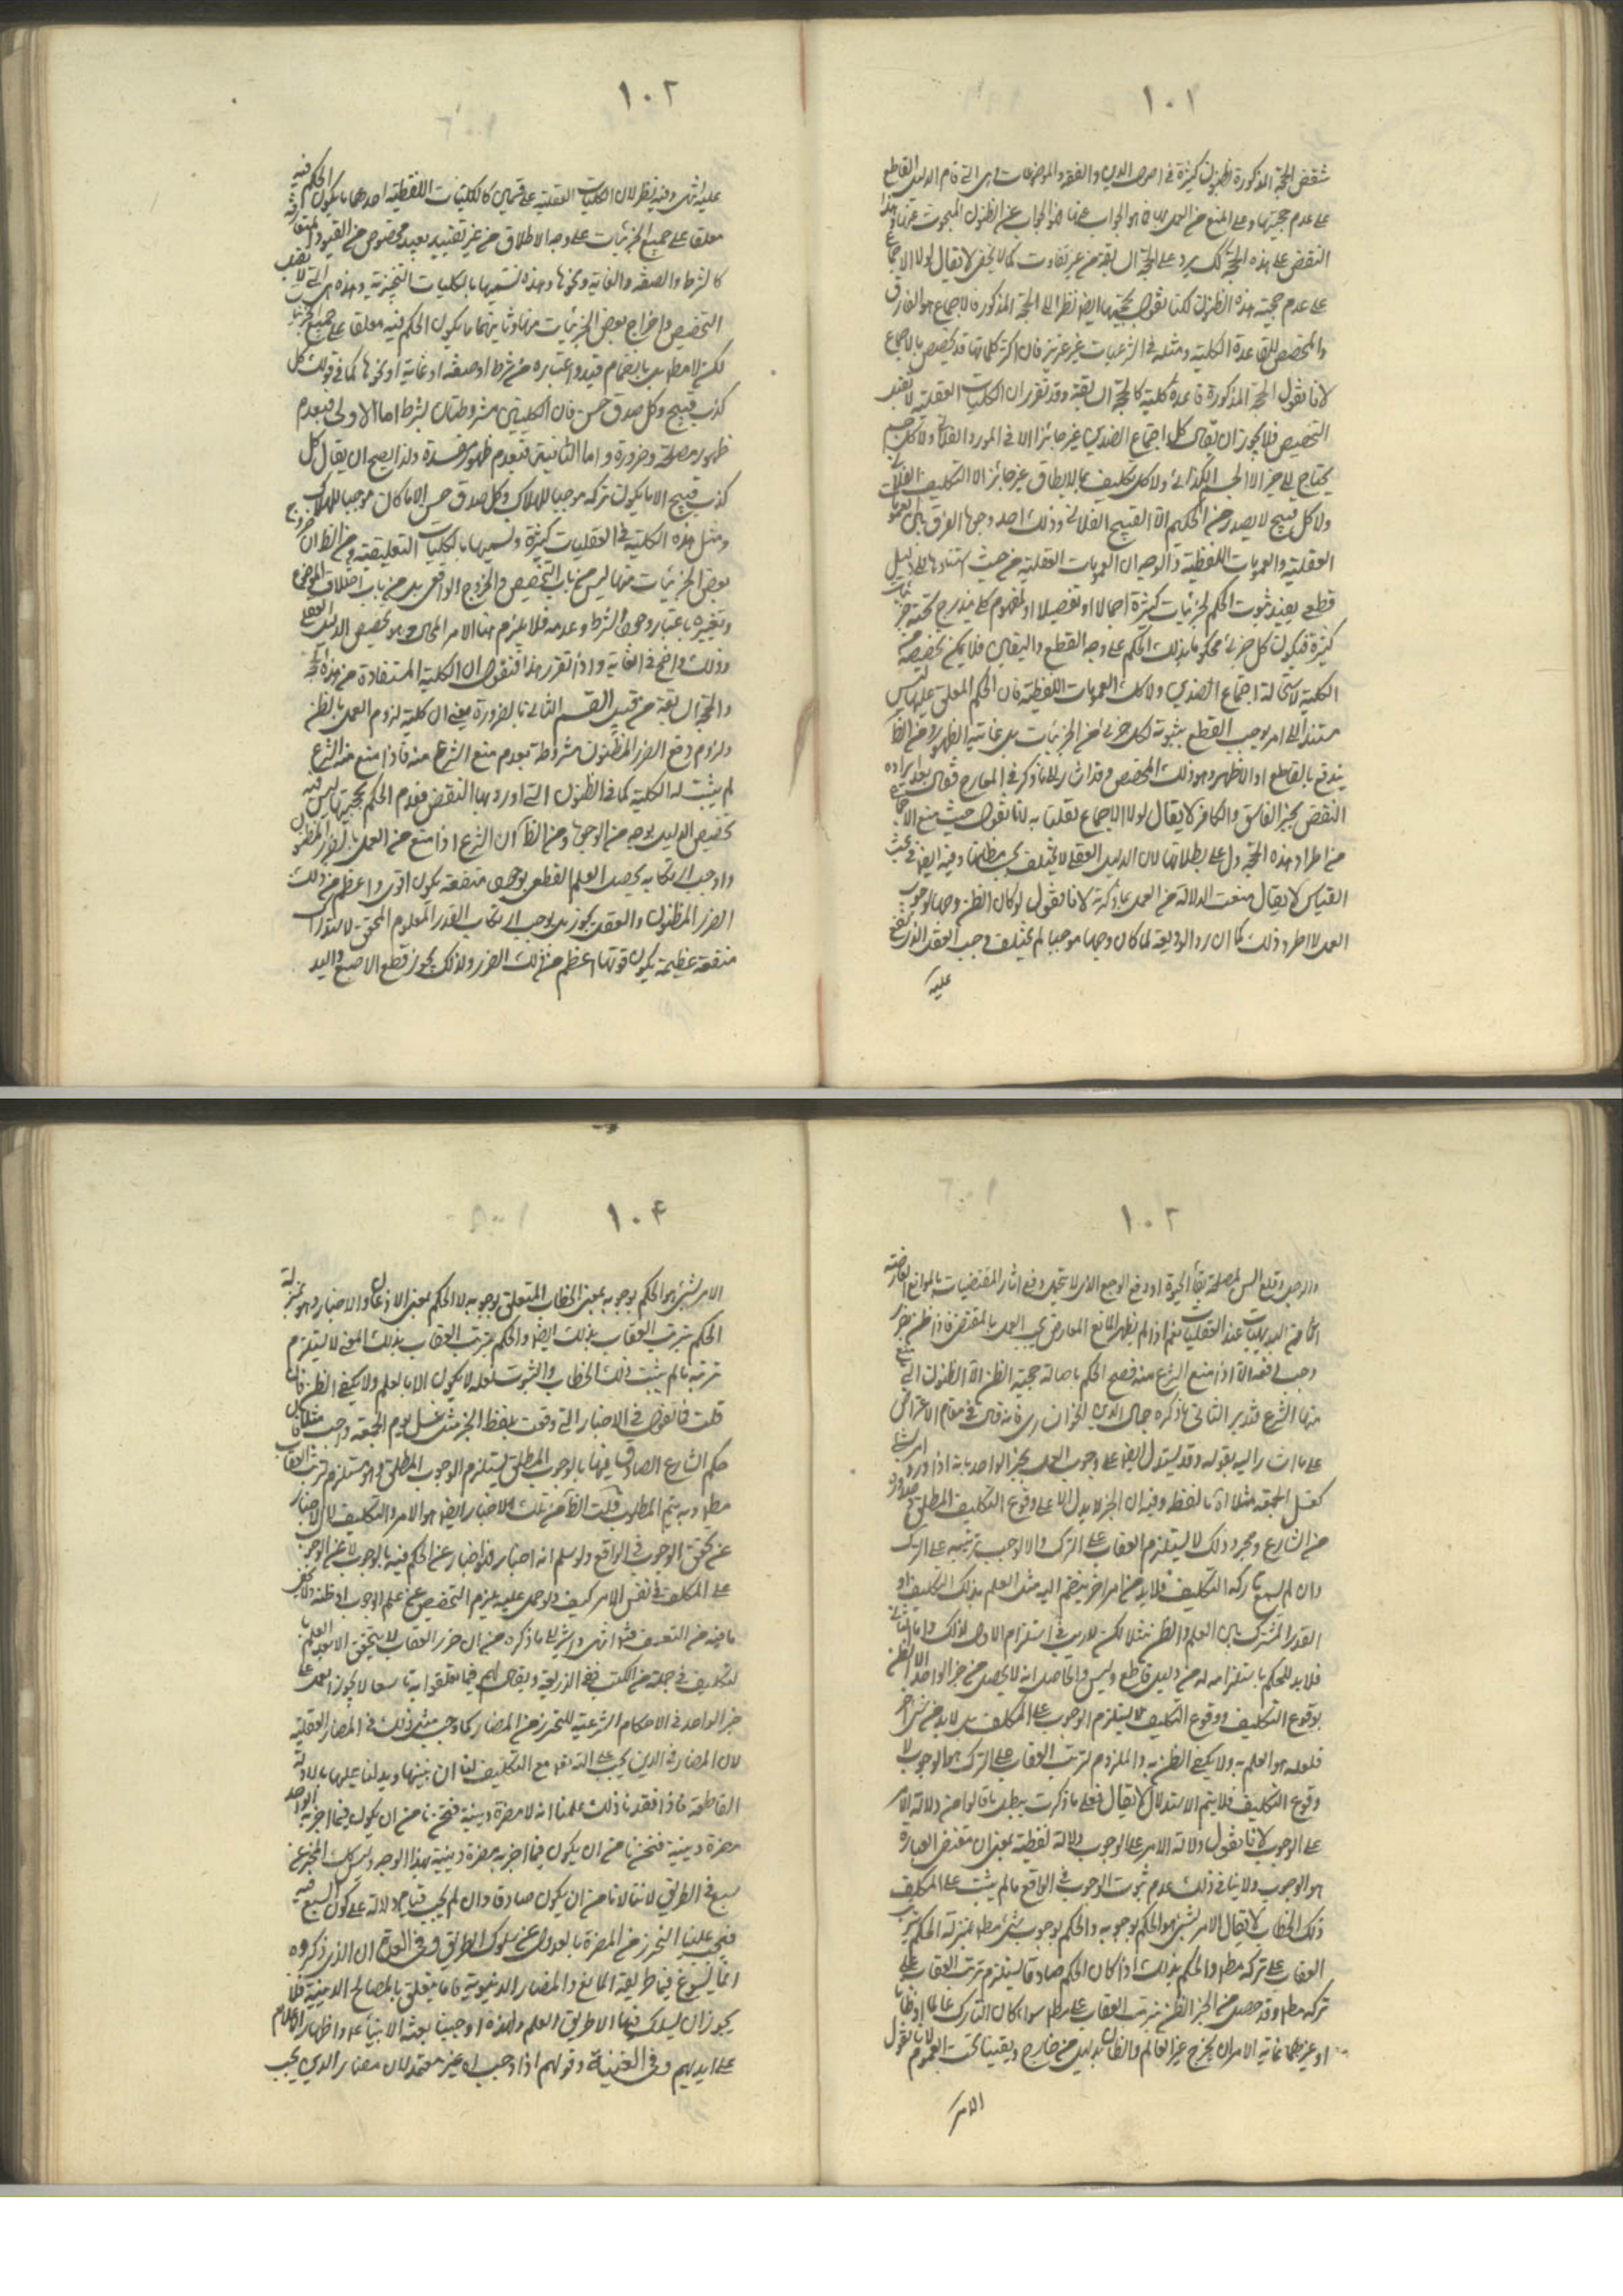 ١٠١
ينتقض الحجة المذكورة بظنون كثيرة في اصول الدين والفقه والموضوعات التي قام الدليل القاطع
على عدم حجيتها وعلى المنع من العمل بها فما هو الجواب عنها فهو الجواب عن الظنون المبحوث عنها وهذا
النقض على هذه الحجة كك يرد على الحجة السابقة من غير تفاوت كما لا يخفى لا يقال لولا الاجماع
على عدم حجية هذه الظنون لكنا نقول بحجيتها ايضا نظرا الى الحجة المذكورة فالاجماع هو الفارق
والمخصص للقاعدة الكلية ومثله في الشرعيات غير عزيز فان اكثر كلياتها قد تخصص بالاجماع
لانا نقول الحجة المذكورة قاعدة كلية كالحجة السابقة وقد تقرر ان الكليات العقلية لا تقبل
التخصيص فلا يجوز ان يقال كل اجتماع الضدين غير جائز الا في المورد الفلاني ولا كل جسم
يحتاج الى حيز الا الجسم الكذائي ولا كل تكليف بما لا يطاق غير جائز الا التكليف الفلاني
ولا كل قبيح لا يصدر من الحكيم الا القبيح الفلاني وذلك احد وجوه الفرق بين العمومات
العقلية والعمومات اللفظية والوجه ان العمومات العقلية من حيث استنادها الى دليل
قطعي يفيد ثبوت الحكم لجزئيات كثيرة اجمالا او تفصيلا او لمفهوم كلي يندرج تحته جزئيات
كثيرة فيكون كل جزئي محكوما بذلك الحكم على وجه القطع واليقين فلا يمكن تخصيصه من
الكلية لاستحالة اجتماع الضدين ولا كك العمومات اللفظية فان الحكم المعلق عليها ليس
مستندا الى امر يوجب القطع بثبوته لكل جزئي من الجزئيات بل غايته الظهور ومن الظاهر
يندفع بالقاطع او الاظهر وهو ذلك المخصص وقد اشار الى ما ذكر في المعارج فقال بعد ايراده
النقض بخبر الفاسق والكافر لا يقال لولا الاجماع لقلنا به لانا نقول حيث منع الاجماع
من اطراد هذه الحجة دل على بطلانها لان الدليل العقلي لا يختلف بحسب مظانها وفيه ايضا في بحث
القياس لا يقال منعت الدلالة من العمل بما ذكرته لانا نقول لو كان الظن وجها لوجوب
العمل لاطرد وذلك كما ان رد الوديعة لما كان وجها موجبا لم يختلف وجب العقد الذي يقع
عليه
١٠٢
عليه انتهى وفيه نظر لان الكليات العقلية على قسمين كالكليات اللفظية احدهما ما يكون الحكم فيه
معلقا على جميع الجزئيات على وجه الاطلاق من غير تقييد بقيد مخصوص من القيود المتعارفة
كالشرط والصفة والغاية ونحوها وهذه نسميها بالكليات التنجيزية وهذه هي التي لا تقبل
التخصيص واخراج بعض الجزئيات منها وثانيهما ما يكون الحكم فيه معلقا على جميع الجزئيات
لكن لا مطلقا بل بانضمام قيد واعتباره من شرط او صفة او غاية او نحوها كما في قولك كل
كذب قبيح وكل صدق حسن فان الكليتين مشروطتان بشرط اما الاولى فبعدم
ظهور مصلحة وضرورة واما الثانية فبعدم ظهور مفسدة ولذا يصح ان يقال كل
كذب قبيح الا ما يكون تركه موجبا للهلاك وكل صدق حسن الا ما كان موجبا للهلاك
ومثل هذه الكلية في العقليات كثيرة ونسميها بالكليات التعليقية ومن الظاهر ان خروج
بعض الجزئيات منها ليس من باب التخصيص والخروج الواقعي بل من باب اختلاف الموضوع
وتغييره باعتبار وجود الشرط وعدمه فلا يلزم هنا الامر المحال وهو تخصيص الدليل العقلي
وذلك واضح في الغاية واذا تقرر هذا فنقول ان الكلية المستفادة من هذه الحجة
والحجة السابقة من قبيل القسم الثاني بالضرورة يعني ان كلية لزوم العمل بالظن
ولزوم دفع الضرر المظنون مشروطة بعدم منع الشرع منه فاذا منع منه الشرع
لم يثبت له الكلية كما في الظنون التي اورد بها النقض فعدم الحكم بحجيتها ليس فيه
تخصيص الدليل بوجه من الوجوه ومن الظاهر ان الشرع اذا منع من العمل بالضرر المظنون
واوجب ارتكابه يحصل العلم القطعي بوجود منفعة يكون اقوى واعظم من ذلك
الضرر المظنون والعقل يجوز بل يوجب ارتكاب الضرر المعلوم المحقق لاستدراك
منفعة عظيمة يكون فوتها اعظم من ذلك الضرر ولذلك يجوز قطع الاصبع واليد
١٠٣
والرجل وقلع السن لمصلحة بقاء الحيوة او دفع الوجع الذي لا يتحمل ودفع اثار المقتضيات بالموانع المعارضة
انما هو من البديهيات عند العقليات نعم اذا لم يظهر المانع المعارض يجب العمل بالمقتضي فاذا ظن بضرر
وجب دفعه الا اذا منع الشرع منه فصح الحكم باصالة حجية الظن الا الظنون التي منع
منها الشرع فتدبر الثاني ما ذكره جمال الدين الخوانساري فانه قال في مقام الاعتراض
على ما اشار اليه بقوله وقد يستدل ايضا على وجوب العمل بخبر الواحد بانه اذا ورد امر بشئ
كغسل الجمعة مثلا اه ما لفظه وفيه ان الخبر لا يدل الا على وقوع التكليف المطلق وصدوره
من الشارع ومجرد ذلك لا يستلزم العقاب على الترك والا لوجب ترتبه على الترك
وان لم يسمع تاركه التكليف فلا بد من امر اخر ينضم اليه مثل العلم بذلك التكليف او
القدر المشترك بين العلم والظن مثلا لكن لا ريب في استلزام الاول لذلك واما الثاني
فلا بد للحكم باستلزامه له من دليل قاطع وليس والحاصل انه لا يحصل من خبر الواحد الا الظن
بوقوع التكليف ووقوع التكليف لا يستلزم الوجوب على المكلف بل لا بد من شئ اخر
فلعله هو العلم به ولا يكفي الظن به والملزوم لترتب العقاب على الترك هو الوجوب لا
وقوع التكليف فلا يتم الاستدلال لا يقال فعلى ما ذكرت يبطل ما قالوا من دلالة الامر
على الوجوب لانا نقول دلالة الامر على الوجوب دلالة لفظية بمعنى ان مقتضى العبارة
هو الوجوب ولا ينافي ذلك عدم ثبوت الوجوب في الواقع ما لم يثبت على المكلف
ذلك الخطاب لا يقال الامر بشئ هو الحكم بوجوبه والحكم بوجوب شئ مطلقا بمنزلة الحكم بترتب
العقاب على تركه مطلقا والحكم بذلك اذا كان الحكم صادقا يستلزم ترتب العقاب على
تركه مطلقا وقد حصل من الخبر الظن بترتب العقاب على تركه مطلقا سواء كان التارك عالما او ظانا
او غيرهما غاية الامر ان يخرج غير العالم والظان بدليل من خارج ويبقيا تحت العموم لانا نقول
الامر
١٠٤
الامر بشئ هو الحكم بوجوبه بمعنى الخطاب المتعلق بوجوبه لا الحكم بمعنى الاذعان او الاخبار وهو بمنزلة
الحكم بترتب العقاب بذلك ايضا والحكم بترتب العقاب بذلك المعنى لا يستلزم
ترتبه ما لم يثبت ذلك الخطاب والثبوت لعله لا يكون الا بالعلم ولا يكفي الظن فان
قلت فما نقول في الاخبار التي وقعت بلفظ الخبر مثل غسل يوم الجمعة واجب مثلا فان
حكم الشارع الصادق فيها بالوجوب المطلق يستلزم الوجوب المطلق وهو يستلزم ترتب العقاب
مطلقا وبه يتم المطلوب قلت الظاهر من تلك الاخبار ايضا هو الامر والتكليف لا الاخبار
عن تحقق الوجوب في الواقع ولو سلم انه اخبار فهو اخبار عن الحكم فيه بالوجوب لا عن الوجوب
على المكلف في نفس الامر كيف ولو حمل عليه يلزم التخصيص بمن علم الوجوب او ظنه ولا يخفى
ما فيه من التعسف فتدبر انتهى واشير الى ما ذكره من ان ضرر العقاب لا يتحقق الا بعد العلم
بالتكليف في جملة من الكتب ففي الذريعة ويقال لهم فيما تعلقوا به تاسعا لا يجوز العمل على
خبر الواحد في الاحكام الشرعية للتحرز من المضار كما وجب مثل ذلك في المضار العقلية
لان المضار في الدين يجب على الله تعالى مع التكليف لنا ان يبينها ويدلنا عليها بالادلة
القاطعة فاذا فقدنا ذلك علمنا انه لا مضرة دينية فنحن نامن ان يكون فيما اخبر به الواحد
مضرة دينية فنحن نامن ان يكون فيما اخبر به مضرة دينية بهذا الوجه وليس كك المخبر عن
سبع في الطريق لاننا لا نامن ان يكون صادقا وان لم يجب قيام دلالة على كون السبع فيه
فيجب علينا التحرز من المضرة بالعدول عن سلوك الطريق وفي العدة ان الذي ذكروه
انما يسوغ فيما طريقه المنافع والمضار الدنيوية فاما ما يتعلق بالمصالح الدينية فلا
يجوز ان يسلك فيها الا طريق العلم ولهذه اوجبنا بعثة الانبياء واظهار الاعلام
على ايديهم وفي الغنية وقولهم اذا وجب اه غير معتمد لان مضار الدين يجب